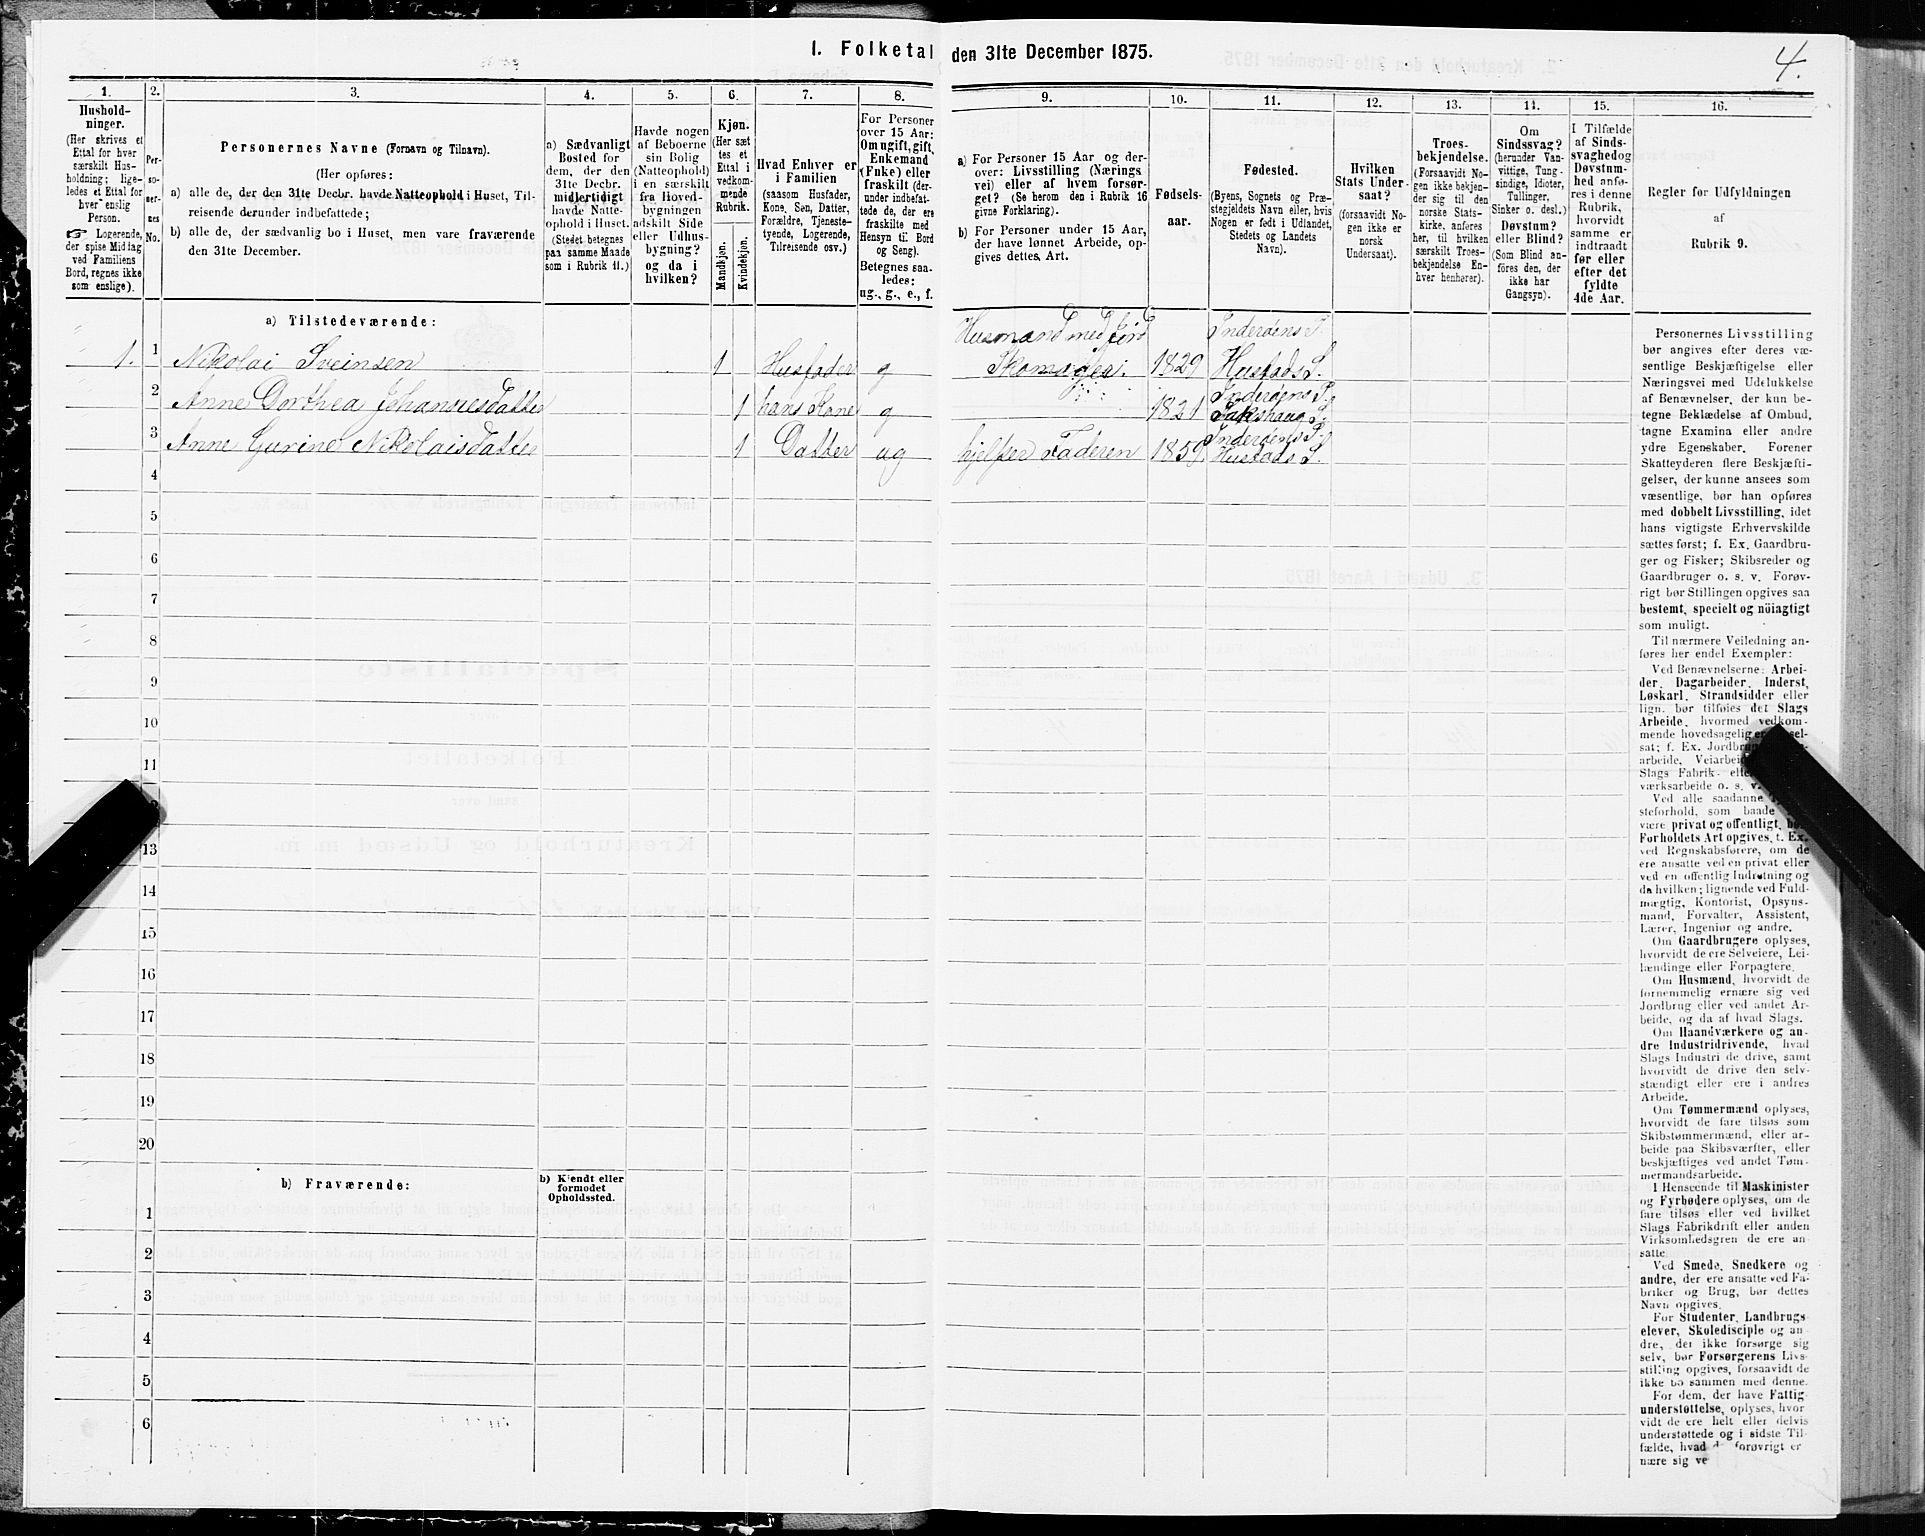 1. Folketal den 31te December 1875.
4.
1.
Hushold-
ninger.
(Her skrives et
Ettal for hver
særskilt Hus-
holdning; lige-
ledes et Ettal for
hver enslig
Person.
☞ Logerende,
der spise Middag
ved Familiens
Bord, regnes ikke
som enslige).
2.
Per-
so-
ner-
nes
No.
3.
Personernes Navne (Fornavn og Tilnavn).
(Her opføres:
a) alle de, der den 31te Decbr. havde Natteophold i Huset, Til-
reisende derunder indbefattede;
b) alle de, der sædvanlig bo i Huset, men vare fraværende
den 31te December.
4.
a) Sædvanligt
Bosted for
dem, der den
31te Decbr.
midlertidigt
havde Natte-
ophold i Huset.
(Stedet betegnes
paa samme Maade
som i Rubrik 11.)
5.
Havde nogen
af Beboerne
sin Bolig
(Natteophold)
i en særskilt
fra Hoved-
bygningen
adskilt Side
eller Udhus-
bygning?
og da i
hvilken?
6.
Kjøn.
(Her sæt
tes et
Ettal i
vedkom-
mende
Rubrik.
Mandkjøn.
Kvindekjøn.
7.
Hvad Enhver er
i Familien
(saasom Husfader,
Kone, Søn, Datter,
Forældre, Tjeneste-
tyende, Logerende,
Tilreisende osv.)
8.
For Personer
over 15 Aar:
Om ugift, gift,
Enkemand
(Enke) eller
fraskilt (der-
under indbefat-
tede de, der ere
fraskilte med
Hensyn til Bord
og Seng).
Betegnes saa-
ledes:
ug., g., e., f.
9.
a) For Personer 15 Aar og der-
over: Livsstilling (Nærings
vei) eller af hvem forsør-
get? (Se herom den i Rubrik 16
givne Forklaring).
b) For Personer under 15 Aar,
der have lønnet Arbeide, op-
gives dettes, Art.
10.
Fødsels-
aar.
11.
Fødested.
(Byens, Sognets og Præ-
stegjeldets Navn eller, hvis
Nogen er født i Udlandet,
Stedets og Landets
Navn).
12.
Hvilken
Stats Under-
saat?
(forsaavidt No-
gen ikke er
norsk
Undersaat).
13.
Troes-
bekjendelse.
(Forsaavidt No-
gen ikke bekjen-
der sig til den
norske Stats-
kirke, anføres
her, til hvilken
særskilt Troes-
bekjendelse En-
hver henhører).
14.
Om
Sindssvag?
(herunder Van-
vittige, Tung-
sindige, Idioter,
Tullinger,
Sinker o. desl.)
Døvstum?
eller Blind?
(Som Blind an-
föres den, der
ikke har
Gangsyn).
15.
I Tilfælde
af Sinds-
svaghed og
Døvstum-
hed anfø-
res i denne
Rubrik,
hvorvidt
samme er
indtraadt
før eller
efter det
fyldte
4de Aar.
16.
Regler for Udfyldningen
af
Rubrik 9.
a) Tilstedeværende:
1. 1 Nikolai Sveinsen 1 Husfader g Husmand med Jord 1829 Inderøens P. Hustads S.
2 Anne Dorthea Johannesdatter 1 hans Kone g 1821 Inderøens P. Sakshaug S.
3 Anne Gurine Nikolaisdatter 1 Datter ug hjelper Faderen 1859. Inderøens P. Hustads S.
4
5
6
7
8
9
10
11
13
14
15
16
17
18
19
20
b) Fraværende:
b) Kjendt eller
formodet
Opholdssted.
1
2
3
4
5
6
Personernes Livsstilling
bør angives efter deres væ-
sentlige Beskjæftigelse eller
Næringsvei med Udelukkelse
af Benævnelser, der kun be-
tegne Beklædelse af Ombud,
tagne Examina eller andre
ydre Egenskaber. Forener
Skatteyderen flere Beskjæfti-
gelser, der kunne ansees som
væsentlige, bør han opføres
med dobbelt Livsstilling, idet
hans vigtigste Erhvervskilde
sættes først; f. Ex. Gaardbru-
ger og Fisker; Skibsreder og
Gaardbruger o. s. v. Forøv-
rigt bør Stillingen opgives saa
bestemt, specielt og nöiagtigt
som muligt.
Til nærmere Veiledning an-
føres her endel Exempler:
Ved Benævnelserne: Arbei-
der, Dagarbeider, Inderst,
Løskarl, Strandsidder eller
lign. bør tilføies det Slags
Arbeide, hvormed vedkom-
mende hovedsagelig er
sat; f. Ex.
arbeide,
Slags Fabrik-
værksarbeide o. s. v.
Ved alle saadanne
steforhold, som baade
være privat og offentligt,
Forholdets Art opgives, t. Ex.
ved Regnskabsførere, om de
ere ansatte ved en privat eller
ved en offentlig Indretning og
da hvilken; lignende ved Fuld-
mægtig, Kontorist, Opsyns-
mand, Forvalter, Assistent,
Lærer, Ingeniør og andre.
Om Gaardbrugere oplyses,
hvorvidt de ere Selveiere, Lei-
lændinge eller Forpagtere.
Om Husmænd, hvorvidt de
fornemmelig ernære sig ved
Jordbrug eller ved andet Ar-
beide, og da af hvad Slags.
Om Haandværkere og an-
dre Industridrivende, hvad
Slags Industri de drive, samt
hvorvidt de drive den selv-
stændigt eller ere i andres
Arbeide.
Om Tømmermænd oplyses,
hvorvidt de fare tilsøs som
Skibstømmermænd, eller ar-
beide paa Skibsværfter, eller
beskjæftiges ved andet Tøm-
mermandsarbeide.
I Henseende til Maskinister
og Fyrbødere oplyses, om de
fare tilsøs eller ved hvilket
Slags Fabrikdrift eller anden
Virksomhedsgren de ere an-
satte.
Ved Smede, Snedkere og
andre, der ere ansatte ved Fa-
briker og Brug, bør dettes
Navn opgives.
For Studenter, Landbrugs-
elever, Skoledisciple og an-
dre, der ikke forsørge sig
selv, bør Forsørgerens Livs-
stilling opgives, forsaavidt de
ikke bo sammen med denne.
For dem, der have Fattig-
understøttelse, oplyses, hvor
vidt de ere helt eller delvis
understøttede og i sidste Til-
fælde, hvad forøvrigt er
nære sig ve